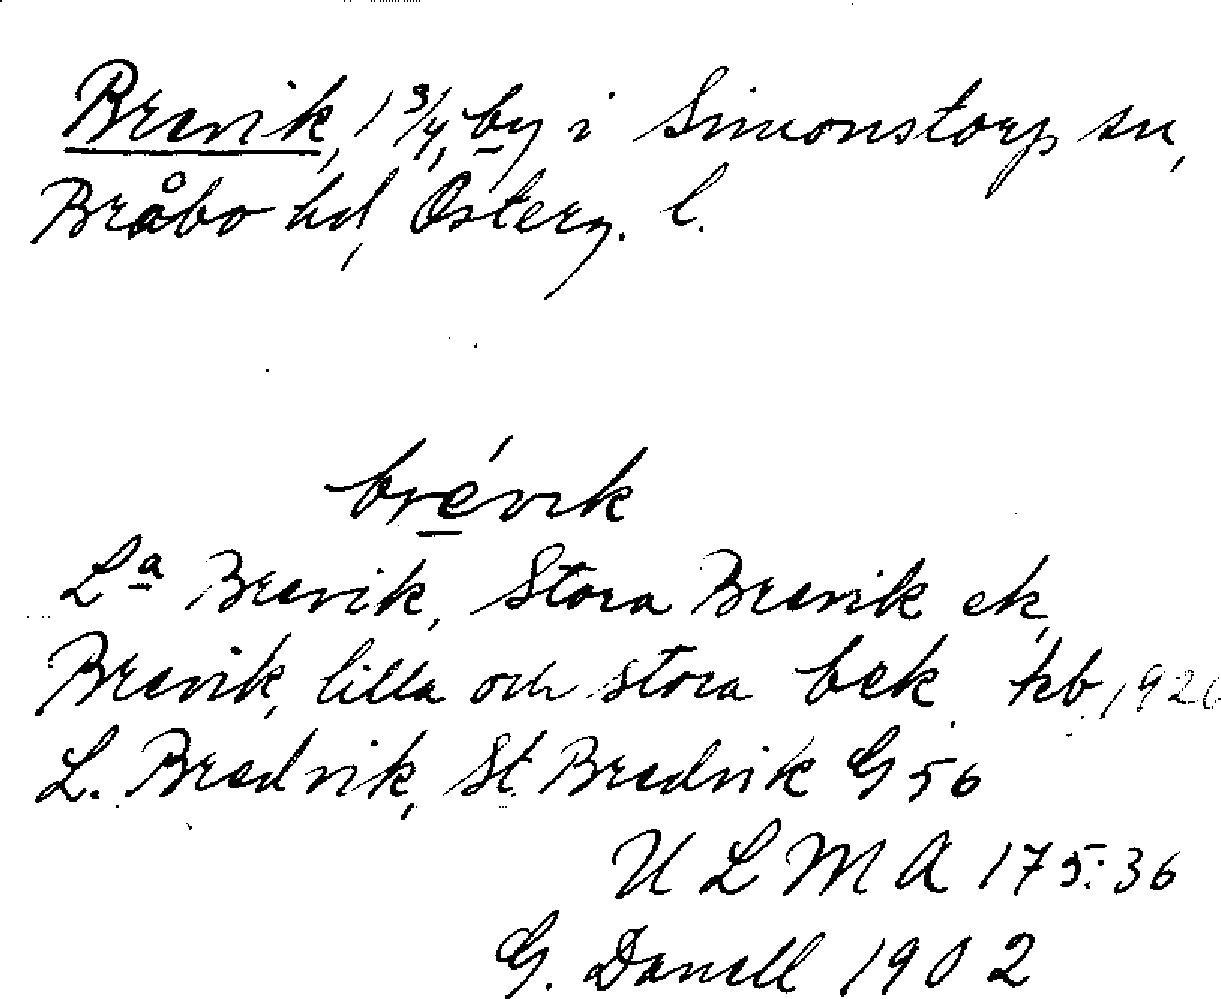 Brevik, 1 3/4, by i Simonstorp sn,
Bråbo hd, Österg. l.
brévik
La Brevik, Stora Brevik ek,
Brevik, lilla och stora bek kb, 1926
L. Bredvik, St. Bredvik G 56
U L M A 175:36
G. Danell 1902